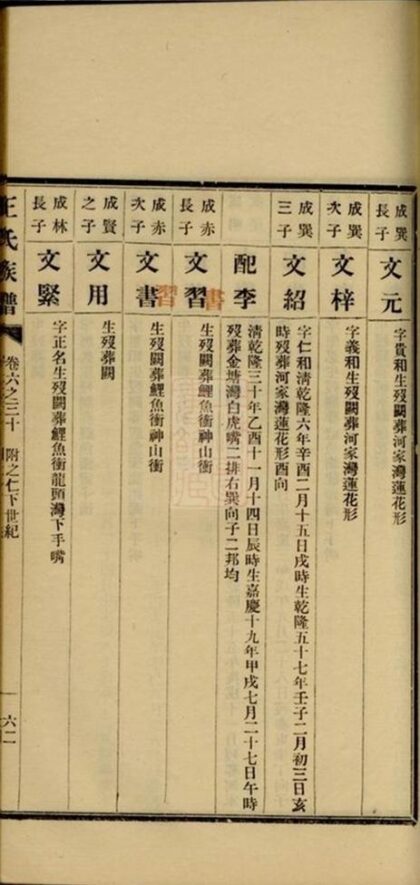 成巽長子 文元 字貴和生歿闕葬河家灣蓮花形
成巽次子 文梓 字義和生歿闕葬河家灣蓮花形
成巽三子 文紹 字仁和清乾隆六年辛酉二月十五日戌時生乾隆五十七年壬子二月初三日亥
時歿葬河家灣蓮花形酉向
配李 清乾隆三十年乙酉十一月十四日辰時生嘉慶十九年甲戌七月二十七日午時
歿葬金塘灣白虎嘴二排右巽向子二邦均
成赤長子 文習 生歿闕葬鯉魚衝神山衝
成赤次子 文書 生歿闕葬鯉魚衝神山衝
成賢之子 文用 生歿葬闕
成林長子 文緊 字正名生歿闕葬鯉魚衝龍頭灣下手嘴
王氏族譜 卷六之三十 附之仁下世紀 六二